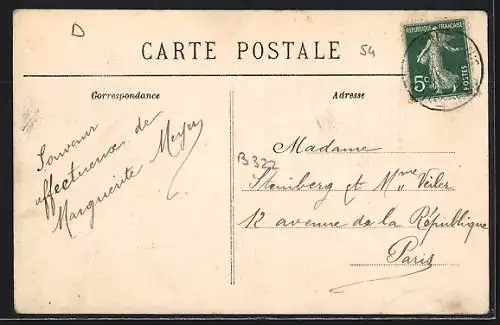 D
CARTE POSTALE
54
REPUBLIQUE FRANÇAISE
5c
POSTES
Correspondance
Adresse
Souvenir
affectueux de
Marguerite Meyer
B 322
Madame
Steinberg et Mme Veiler
12 avenue de la République
Paris